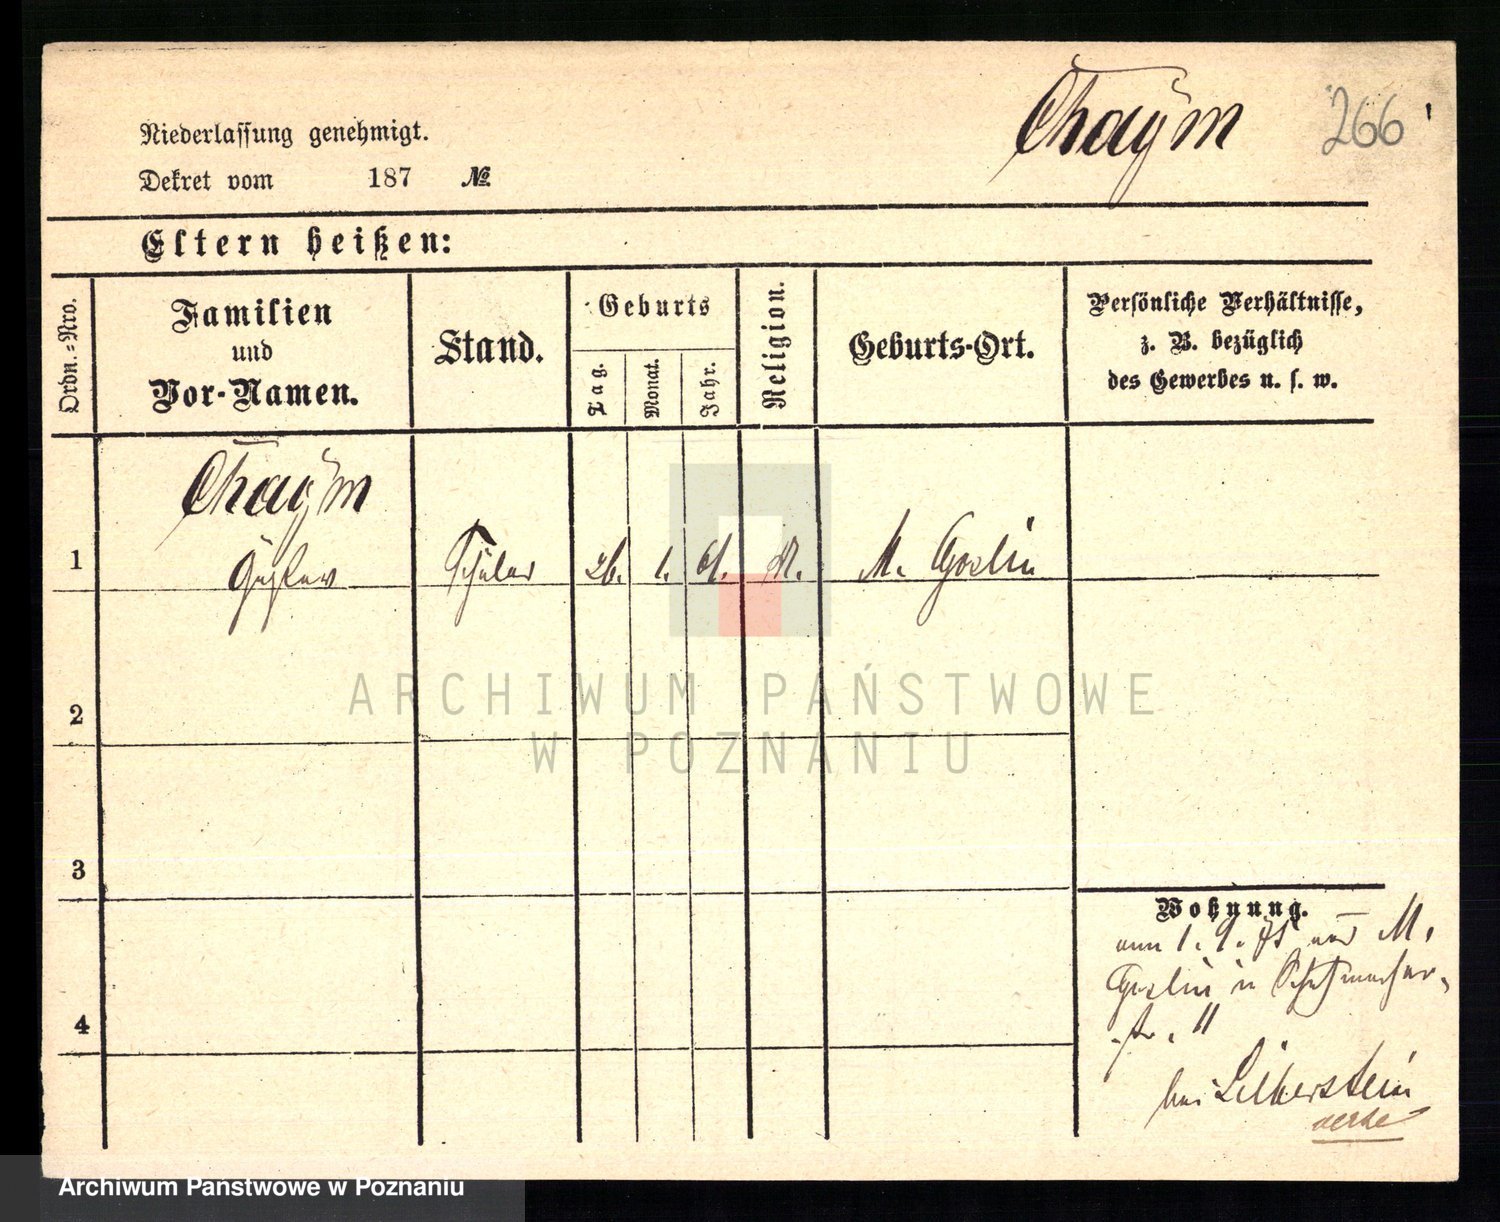 Chaÿm 266
Niederlassung genehmigt.
Dekret vom 187 №
Eltern heißen:
Ordn.=Nro. Familien und Vor-Namen. Stand. Geburts Tag. Monat. Jahr. Religion. Geburts-Ort. Persönliche Verhältnisse, z. B. bezüglich des Gewerbes u. s. w.
Chaÿm
1 Gustav Schüler 26. 1. 61. M. Goslin
2
3
4
Wohnung.
1. 9. 75 M.
Goslin Schuhmacher-
str. 11
bei Silberstein
ARCHIWUM PAŃSTWOWE
W POZNANIU
Archiwum Państwowe w Poznaniu